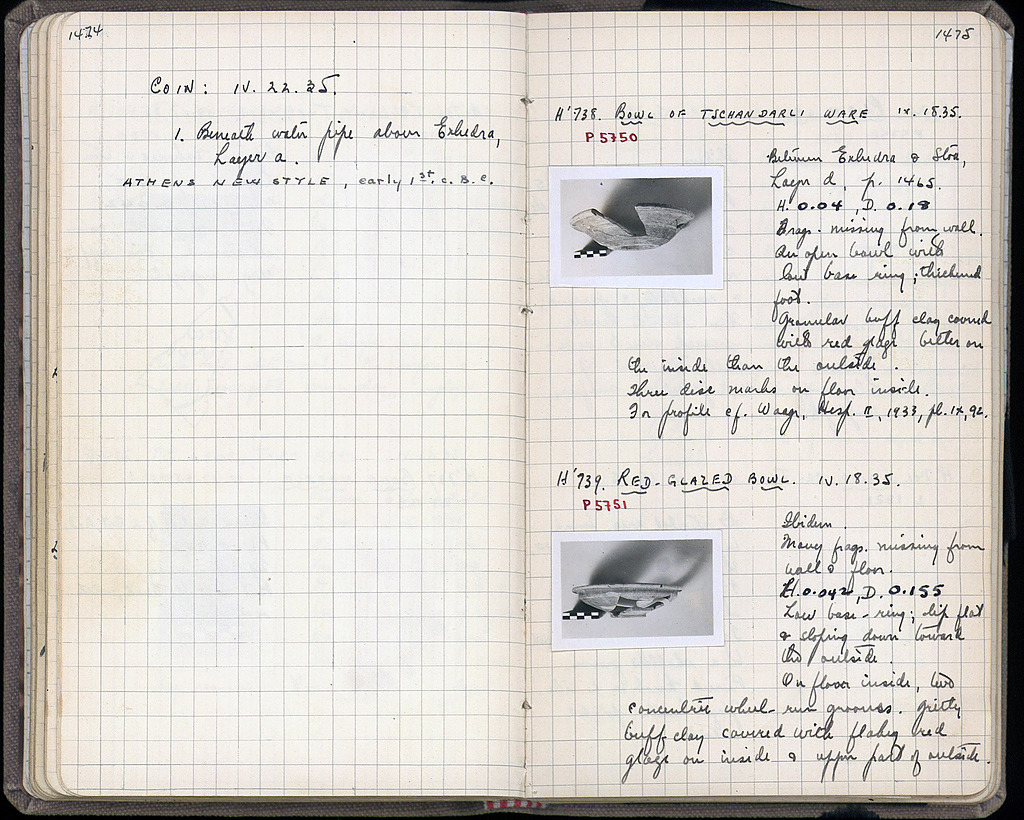 1474
COIN: IV. 22. 35.
1. Beneath water pipe above Exhedra,
Layer a.
ATHENS NEW STYLE, early 1st. c. B.C.
1475
H'738. BOWL OF TSCHANDARLI WARE IV. 18.35.
P 5750
Between Exhedra & Stoa,
Layer d, p. 1465.
H. 0.04, D. 0.18
Frags. missing from wall.
An open bowl with
low base ring; thickened
foot.
Granular buff clay covered
with red glaze better on
the inside than the outside.
Three disc marks on floor inside.
For profile cf. Waage, Hesp. II, 1933, pl. IX, 92.
H'739. RED-GLAZED BOWL. IV. 18. 35.
P 5751
Ibidem.
Many frags. missing from
wall & floor.
H. 0.042, D. 0.155
Low base-ring; lip flat
& sloping down toward
the outside.
On floor inside, two
concentric wheel-run grooves. Gritty
buff clay covered with flakey red
glaze on inside & upper part of outside.